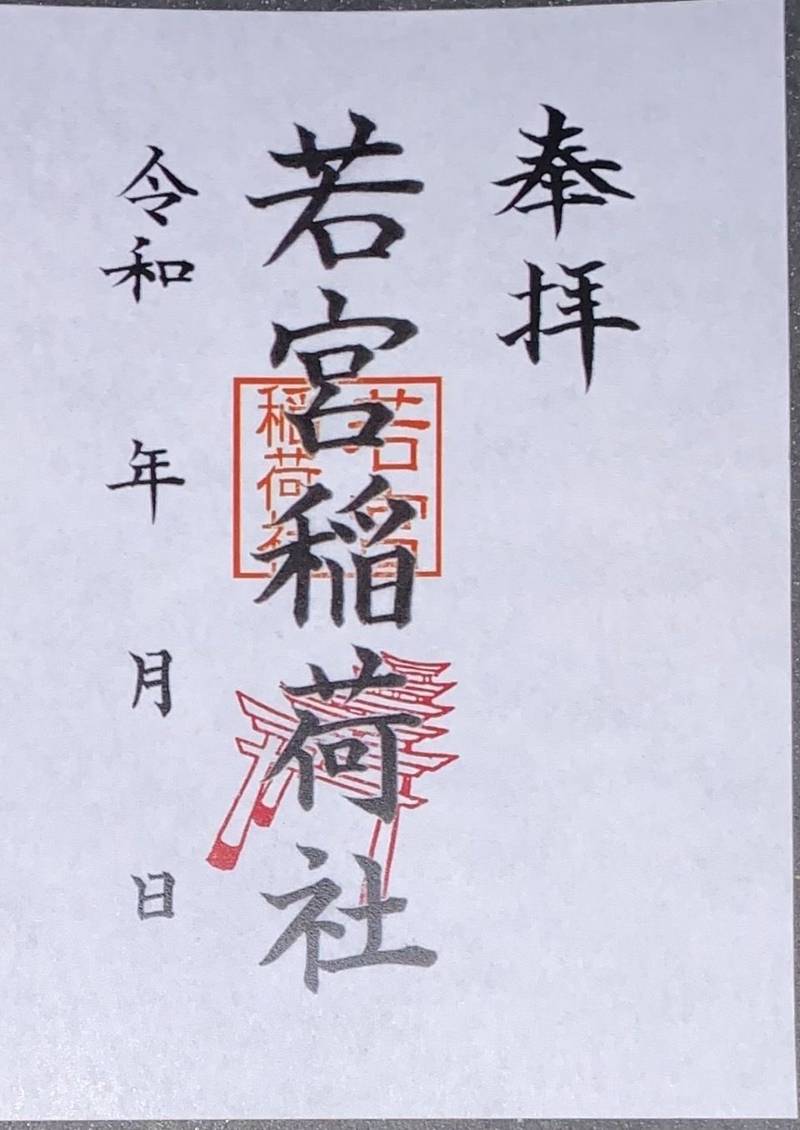 奉拝
若宮稲荷社
若宮
稲荷社
令和 年 月 日